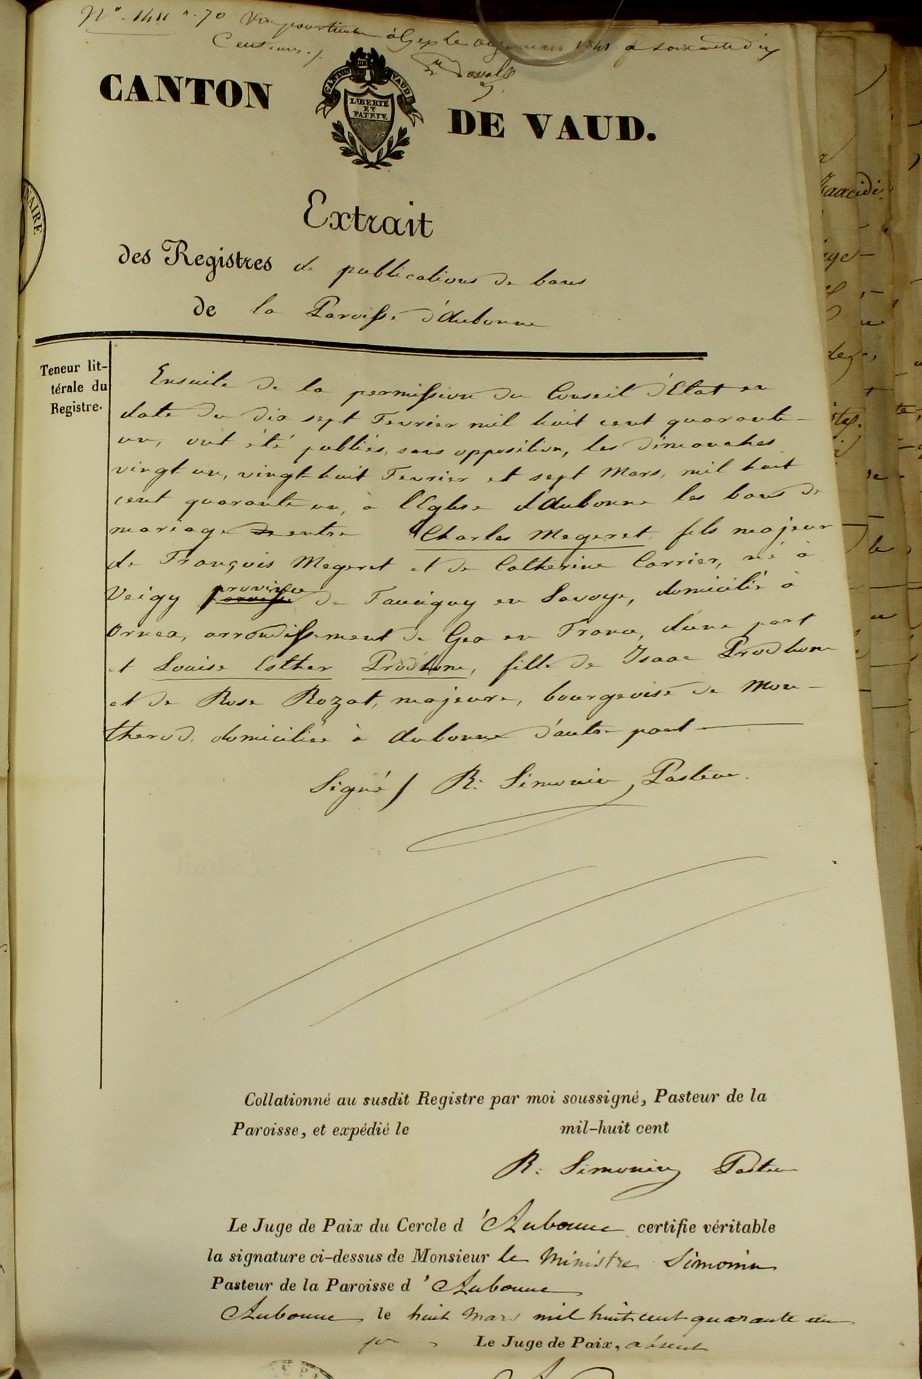 N.° 1411 r. 70 Vu pour timbre à Gex le onze mars 1841 à soixante dix
Centimes.
CANTON DE VAUD.
CANTON DE VAUD
LIBERTÉ
ET
PATRIE
NAIRE
Extrait
des Registres de publications de bans
de la Paroisse d'Aubonne
Teneur lit-
térale du
Registre.
Ensuite de la permission du Conseil d'Etat en
date du dix sept Fevrier mil huit cent quarante-
un, ont été publiés, sans opposition, les dimanches
vingt un, vingt huit Fevrier et sept Mars, mil huit
cent quarante un, à l'Eglise d'Aubonne les bans de
mariage entre Charles Megeret, fils majeur
de François Megeret et de Catherine Carrier, né à
Veigy province de Faucigny en Savoye, domicilié à
Ornex, arrondissement de Gex en France, d'une part
et Louise Esther Prodhom, fille de Isaac Prodhom
et de Rose Rozat, majeure, bourgeoise de Mon-
therod, domiciliée à Aubonne d'autre part
Signé / R: Simonin, Pasteur.
Collationné au susdit Registre par moi soussigné, Pasteur de la
Paroisse, et expédié le mil-huit cent
R: Simonin Pasteur
Le Juge de Paix du Cercle d'Aubonne certifie véritable
la signature ci-dessus de Monsieur le Ministre Simonin
Pasteur de la Paroisse d'Aubonne
Aubonne le huit Mars mil huit cent quarante un
pr Le Juge de Paix, absent